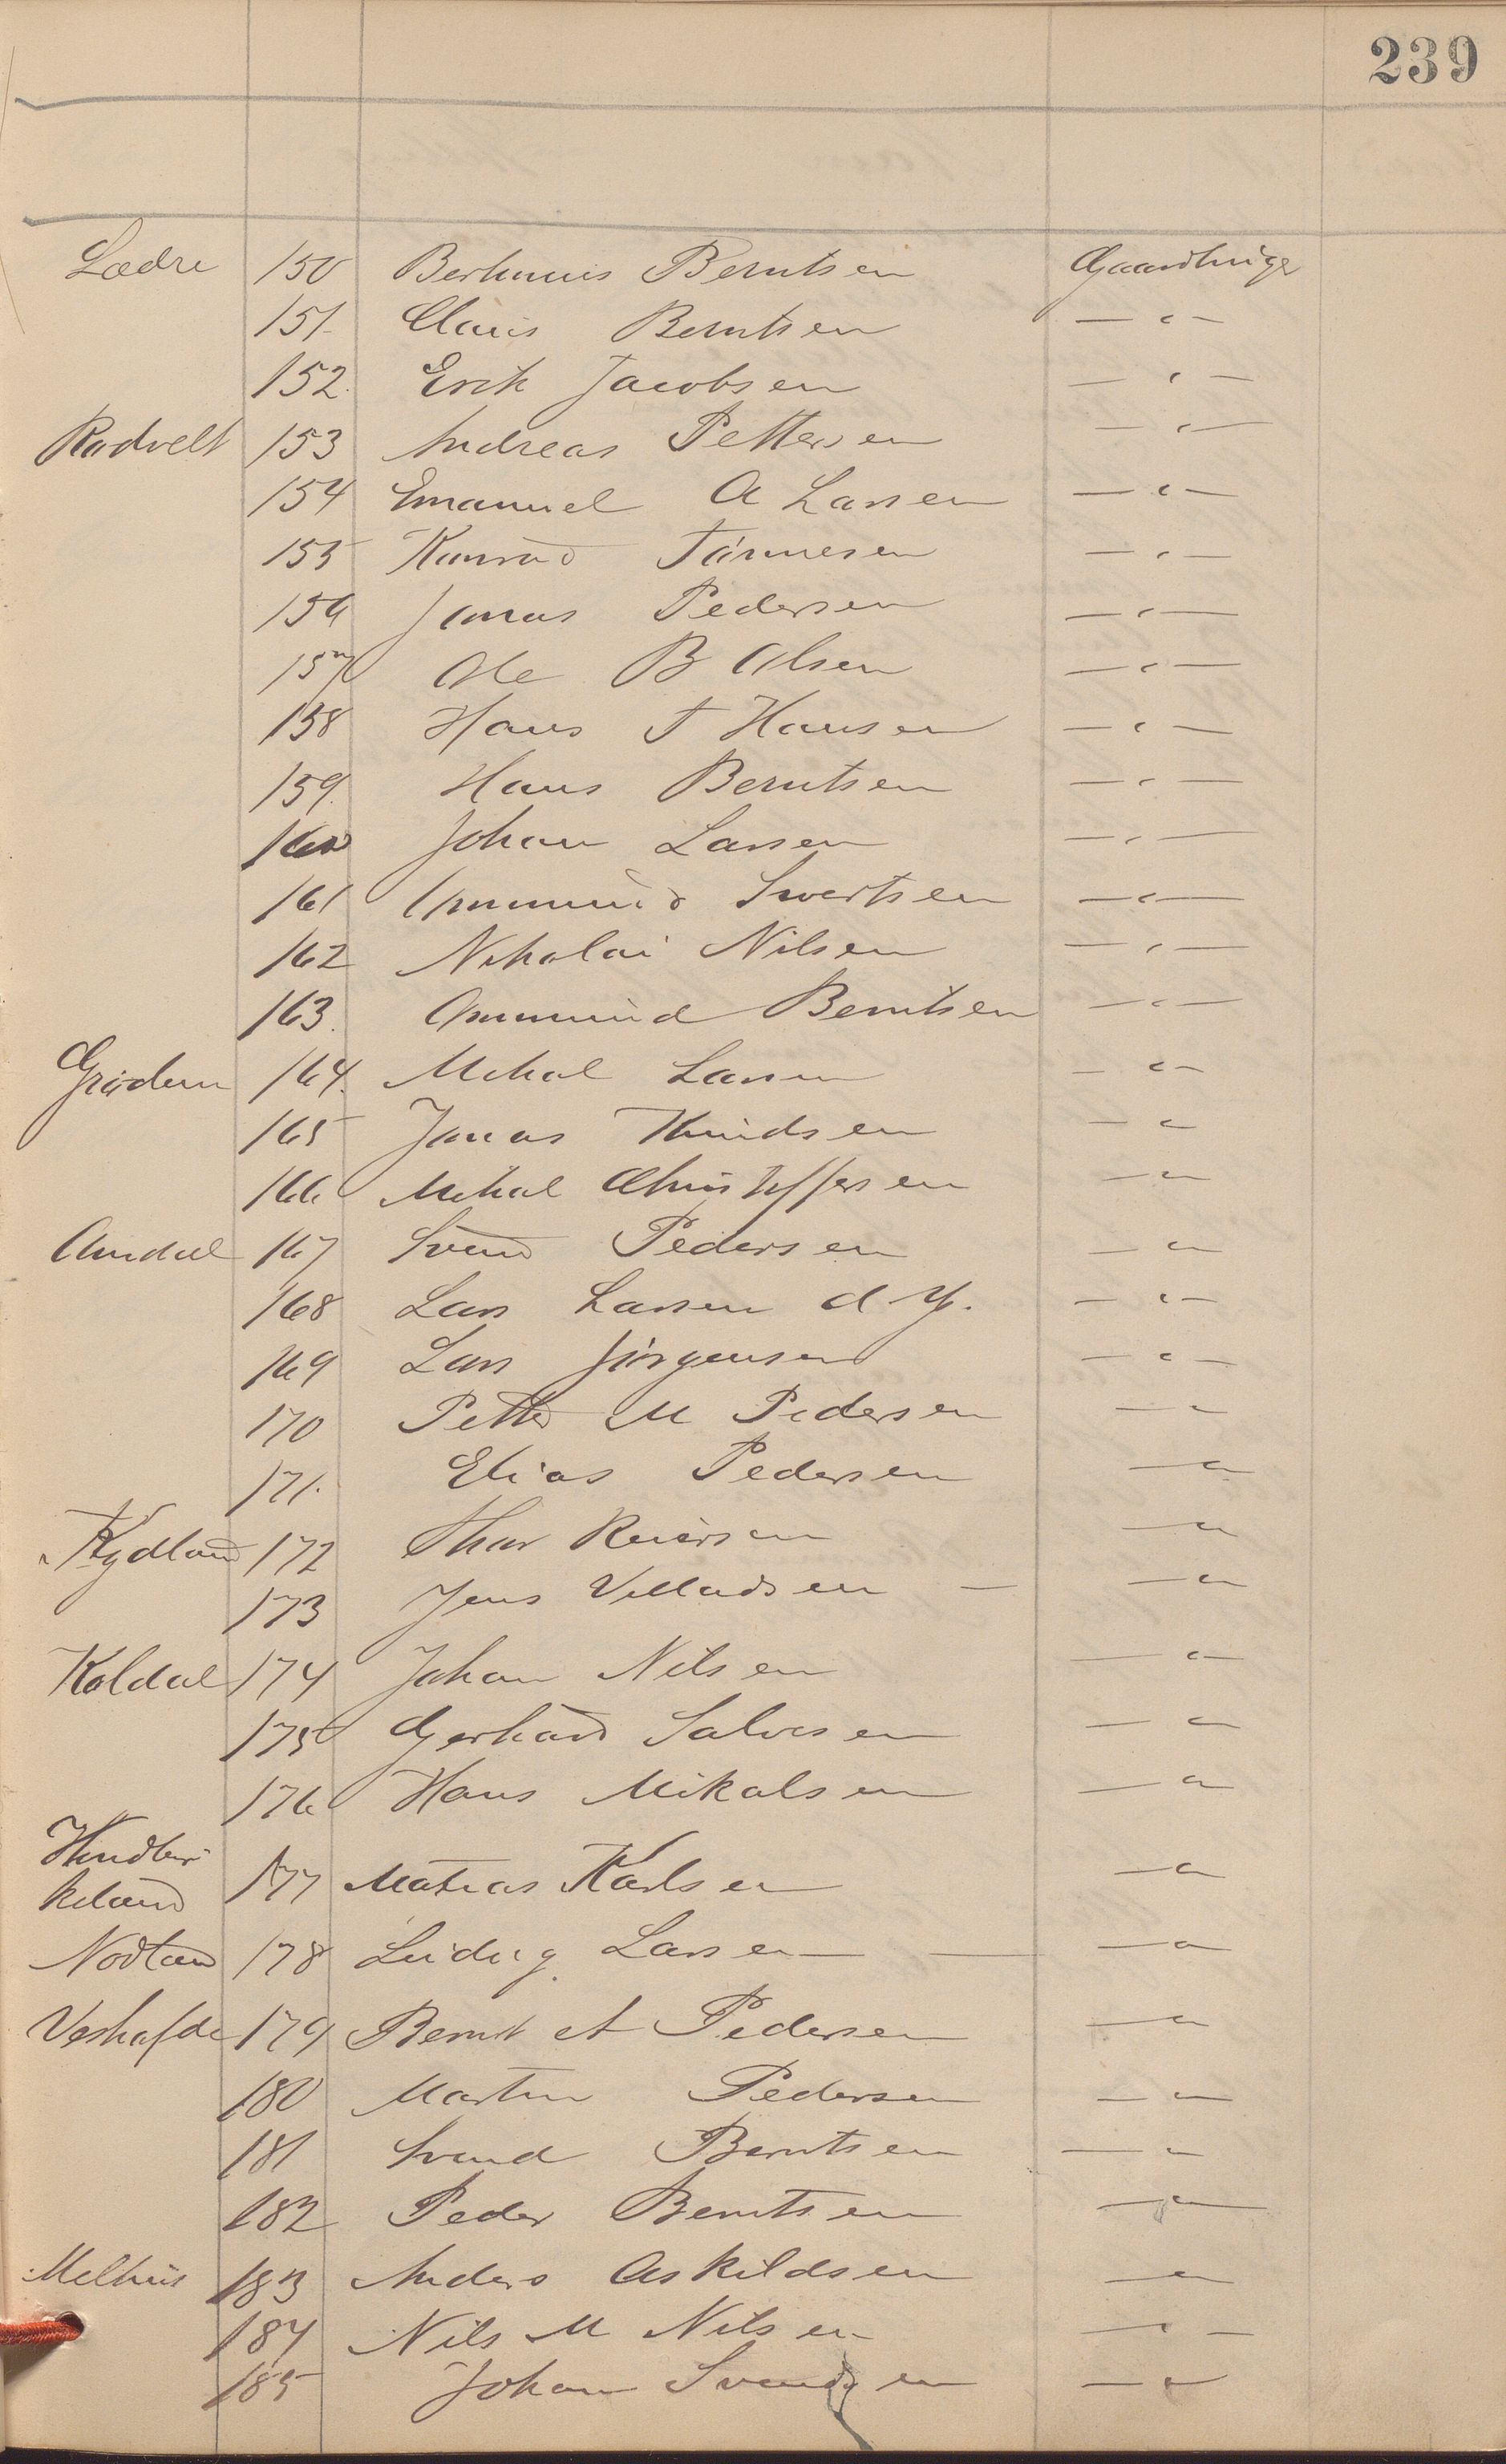 239
Lædre 150 Berhunus Berntsen Gaardbruger
151. Claus Berntsen — " —
152. Erik Jacobsen — " —
Rødvelt 153 Andreas Pettersen — " —
154 Emanuel A Larsen — " —
155 Konrad Tønnesen — " —
156 Jonas Pedersen — " —
157 Ole B Olsen — " —
158 Hans T Hansen — " —
159. Hans Berntsen — " —
160 Johan Larsen — " —
161 Ommund Sivertsen — " —
162 Nikolai Nilsen — " —
163. Ommund Berntsen — " —
Grödem 164. Mikal Larsen — " —
165 Jonas Knudsen — "
166 Mikal Christoffersen — " —
Amdal 167 Svend Pedersen — " —
168 Lars Larsen d Y. — " —
169 Lars Jörgensen — " —
170 Petter M Pedersen — " —
171. Elias Pedersen — " —
Kydland 172 Thor Reiersen — " —
173 Jens Villadsen — — " —
Koldal 174 Johan Nilsen — " —
175 Gerhard Salvesen — " —
176 Hans Mikalsen — " —
keland 177 Matias Karlsen — " —
Nodland 178 Ludvig Larsen — — " —
Veshafde 179 Bernt A Pedersen — " —
180 Martin Pedersen — " —
181 Svend Berntsen — " —
182 Peder Berntsen — " —
Melhus 183 Anders Askildsen — " —
184 Nils M Nilsen — " —
185 Johan Svendsen — " —